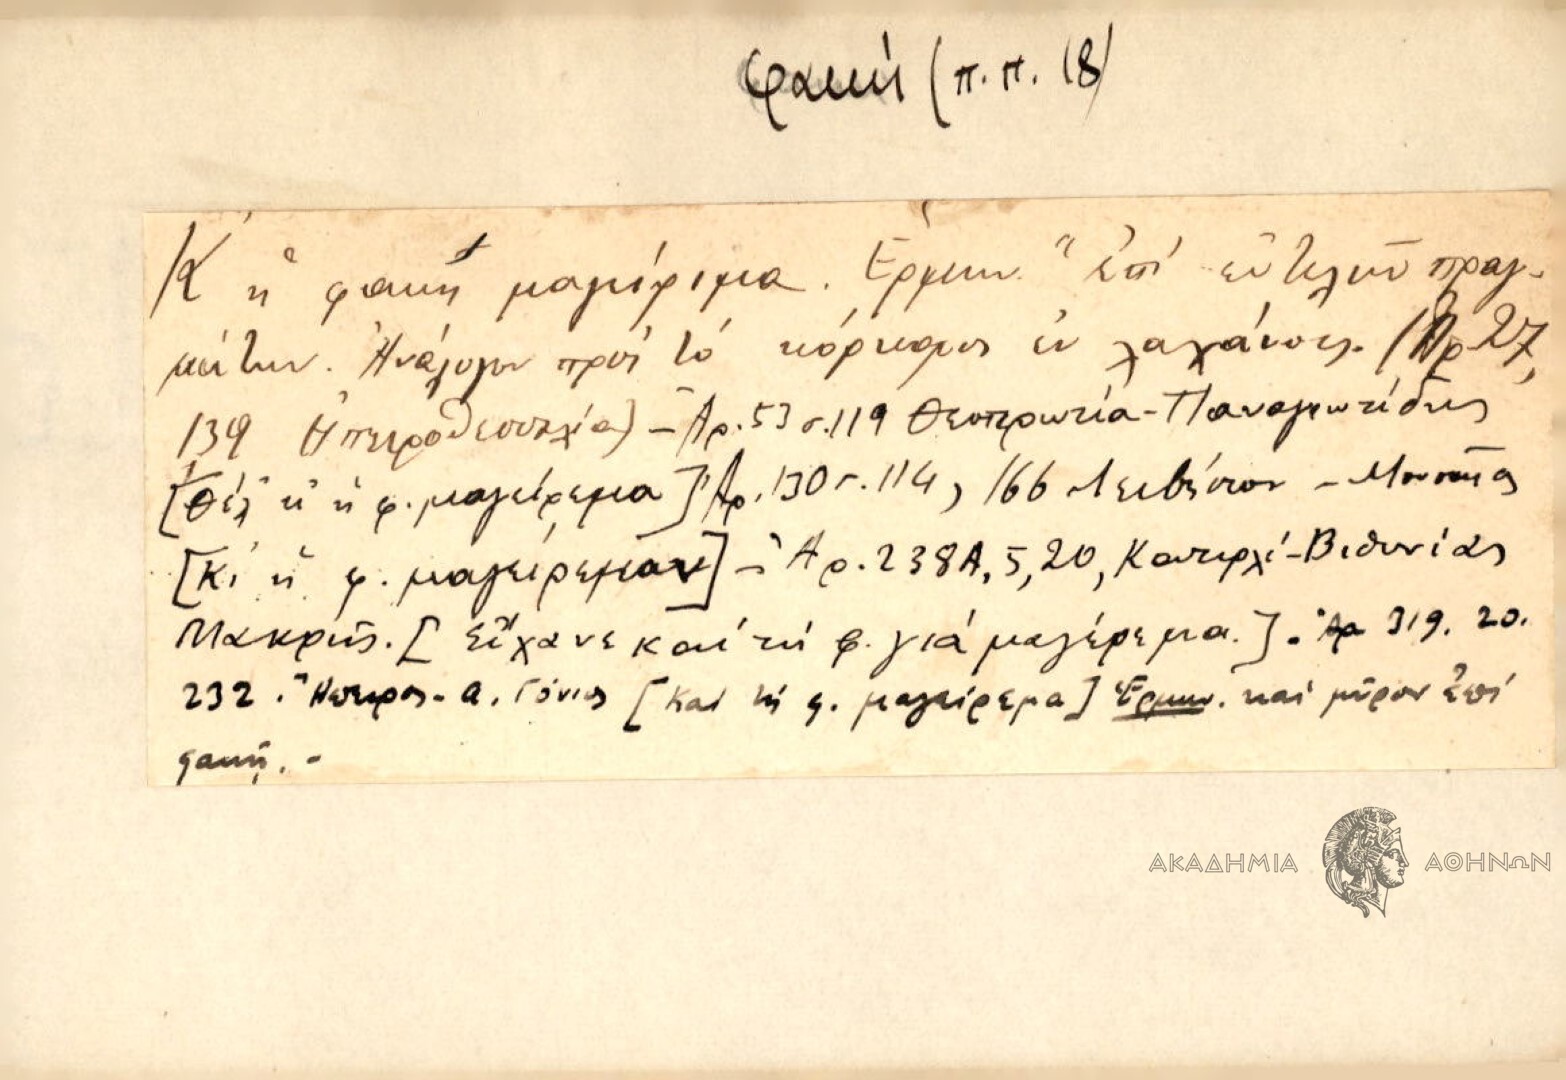 φακή (π.π. 18)
Κ' ἡ φακῆ μαγείριμα. Ἑρμην. "ἐπί εὐτελῶν πραγ-
μάτων. Ἀνάλογον πρός τό κόρκορος ἐν λαχάνοις. (Ἀρ. 27,
139 Ἤπειρο
Ἀρ. 53 σ. 119 Θεσπρωτία - Παναγιωτίδης
[Θέλ' κ' ἡ φ. μαγείρεμα] Ἀρ. 130 σ. 114, 166 Λειβήσιον - Μουσαῖος
[Κι' ἡ φ. μαγείρεμαν] - Ἀρ. 238Α, 5, 20, Κατιρλί - Βιθυνίας
Μακρῆς. [Εἴχανε καί τή φ. γιά μαγέρεμα.] - Ἀρ 319. 20.
232. Ἤπειρος - Α. Γόνιος [Καί ἡ φ. μαγείρεμα] Ἑρμην. καί μῦρον ἐπί
φακῇ. -
ΑΚΑΔΗΜΙΑ ΑΘΗΝΩΝ